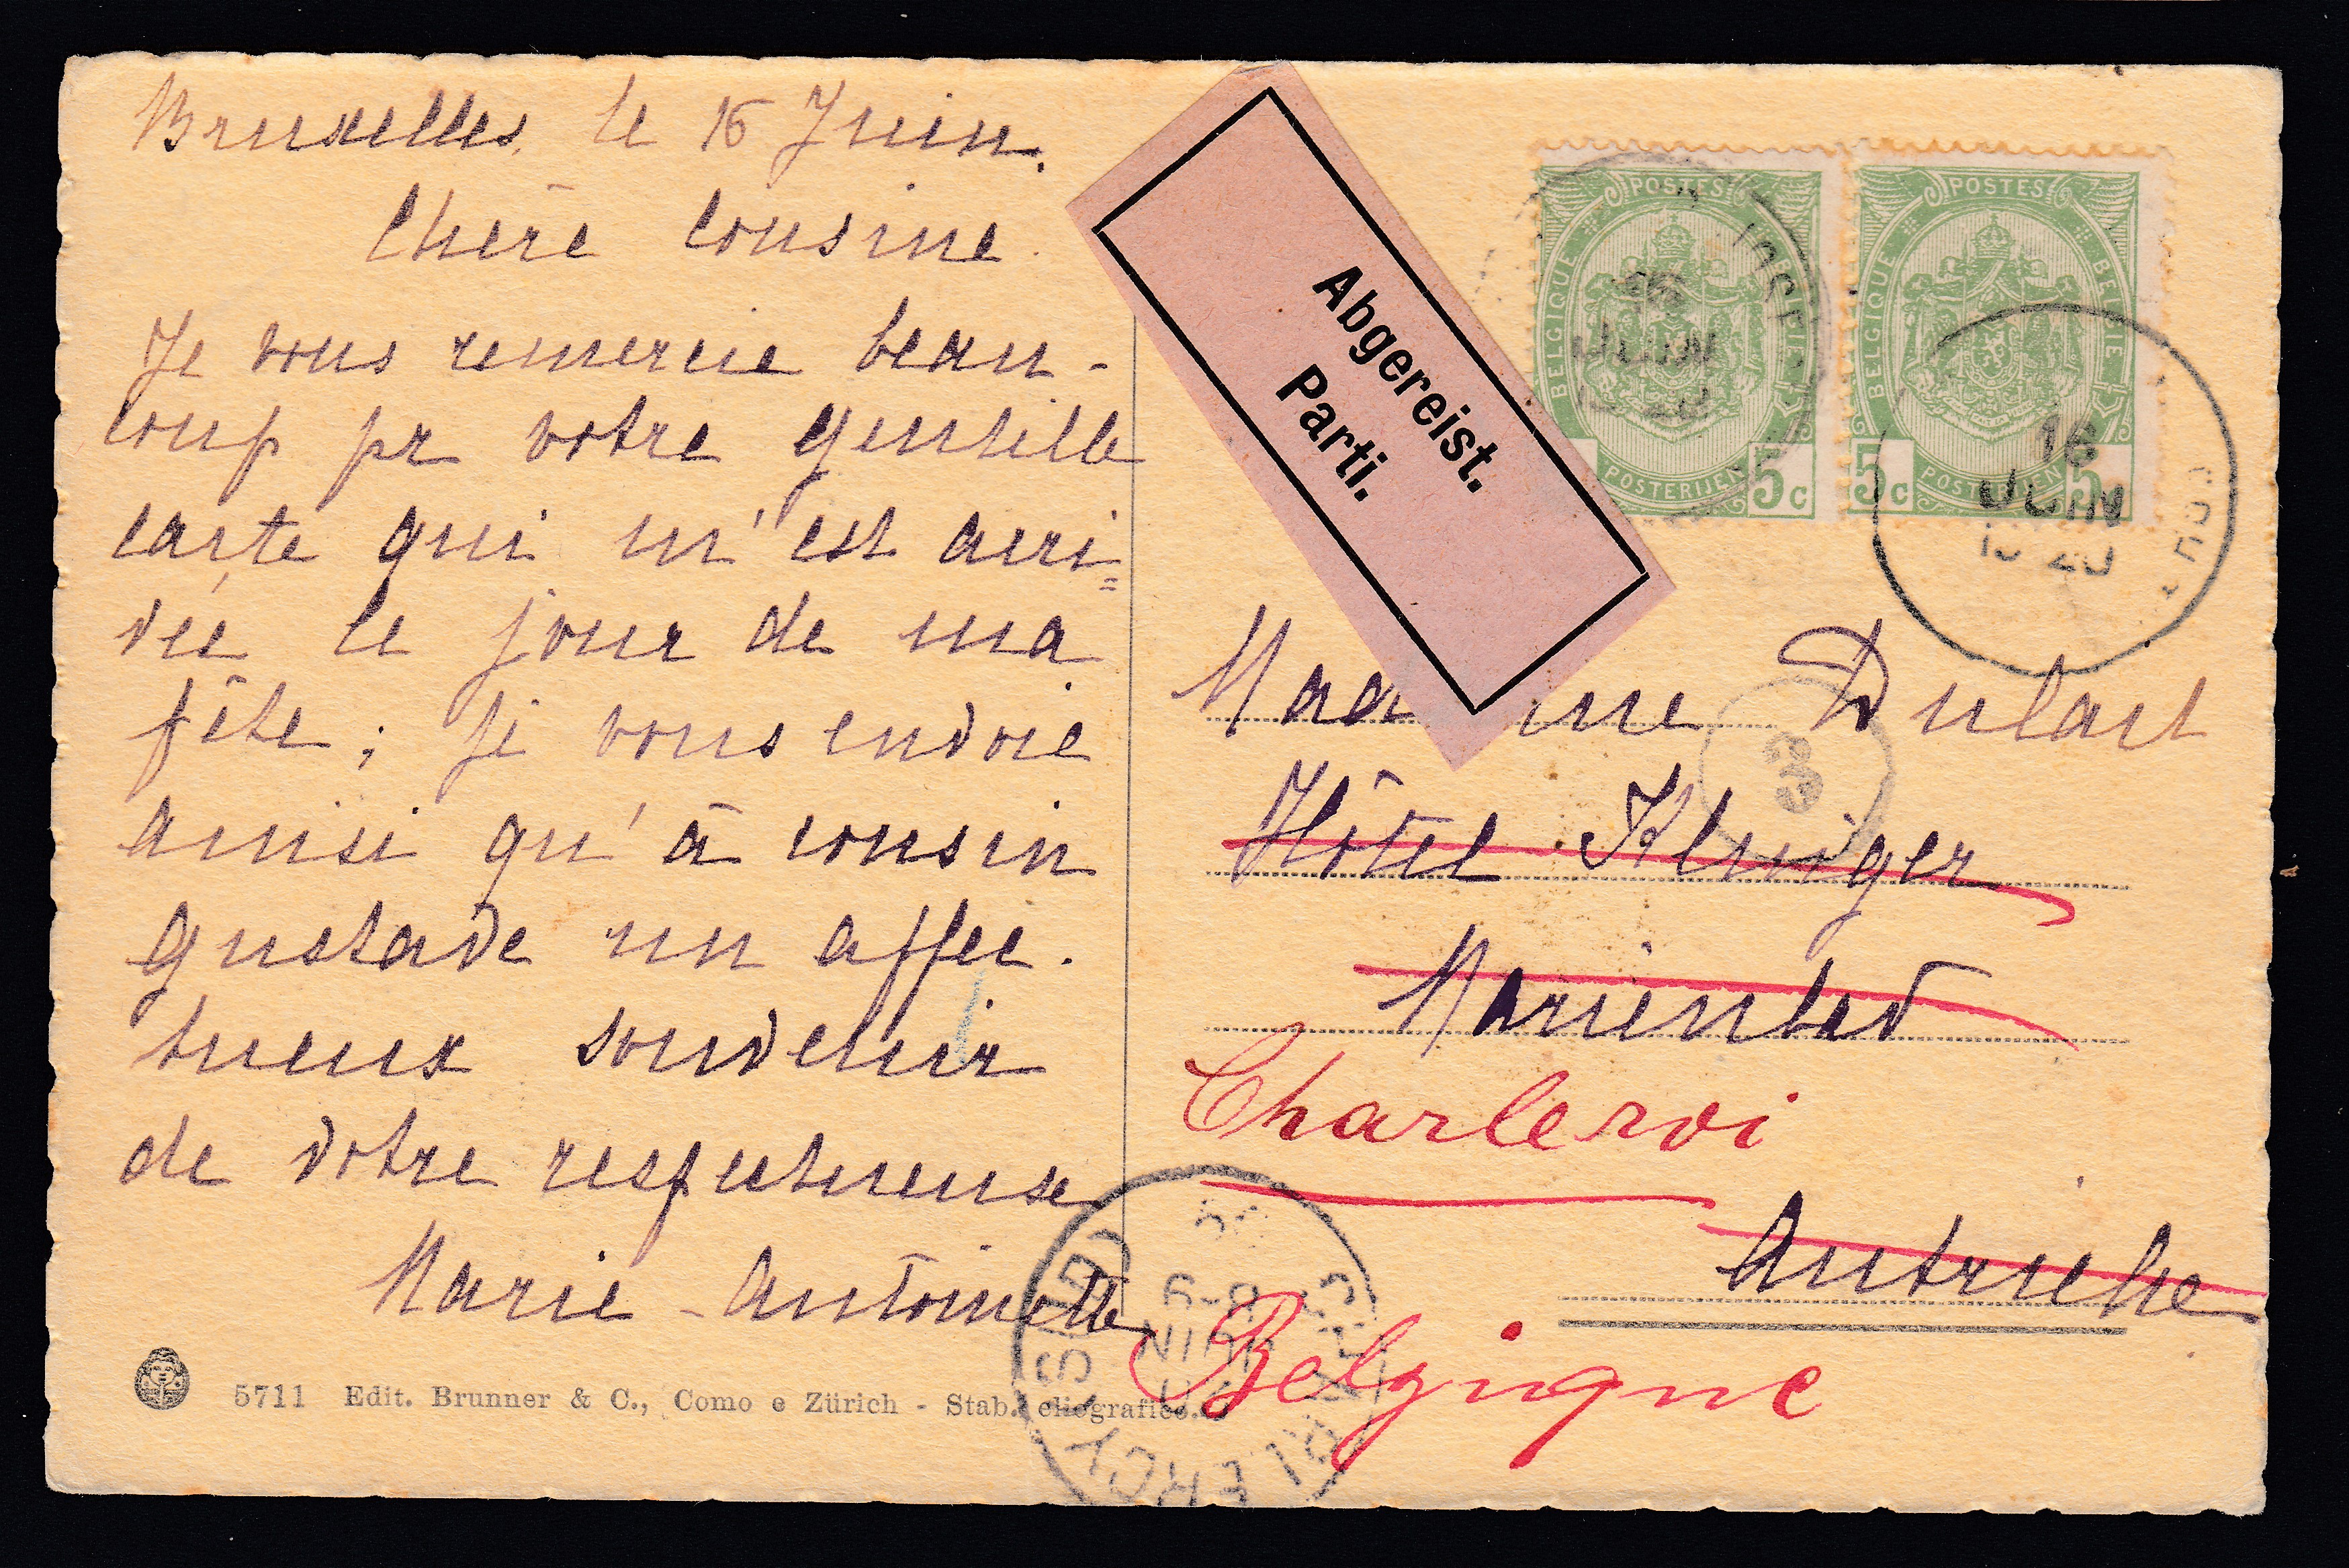 Bruxelles, le 16 Juin.
Chère Cousine.
Je vous remercie beau-
coup pr votre gentille
carte qui m'est arri=
vée le jour de ma
fête ; je vous envoie
ainsi qu'à cousin
Gustave un affec-
tueux souvenir
de votre respectueuse
Marie-Antoinette
5711 Edit. Brunner & C., Como e Zürich - Stab. eliografico.
Abgereist.
Parti.
POSTES
BELGIQUE
BELGIE
POSTERIJEN
5c
16
JUIN
POSTES
BELGIQUE
BELGIE
POSTERIJEN
5c
5
16
JUIN
3
Madame Dulait
Hôtel Klinger
Marienbad
Charleroi
Autriche
Belgique